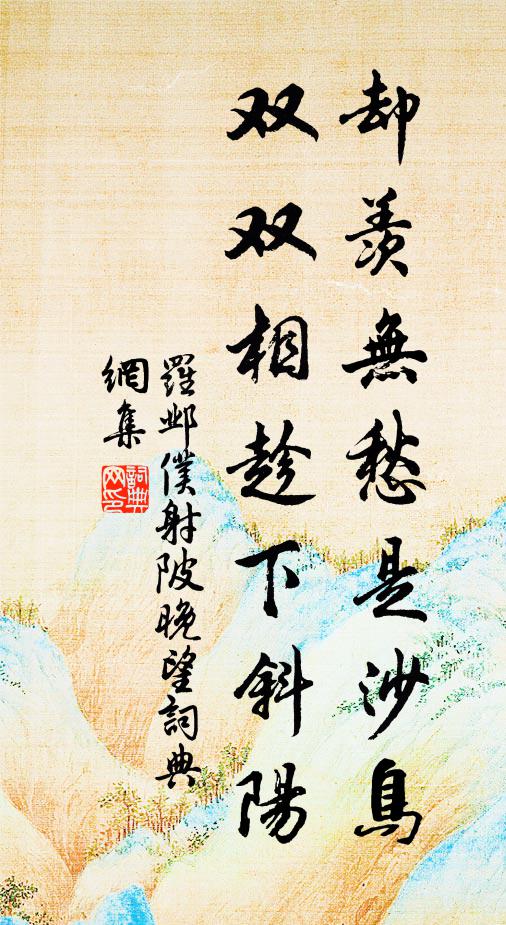 却羨無愁是沙鳥
双双相趁下斜陽
羅邺僕射陂晚望詞典
網集
詞典網印